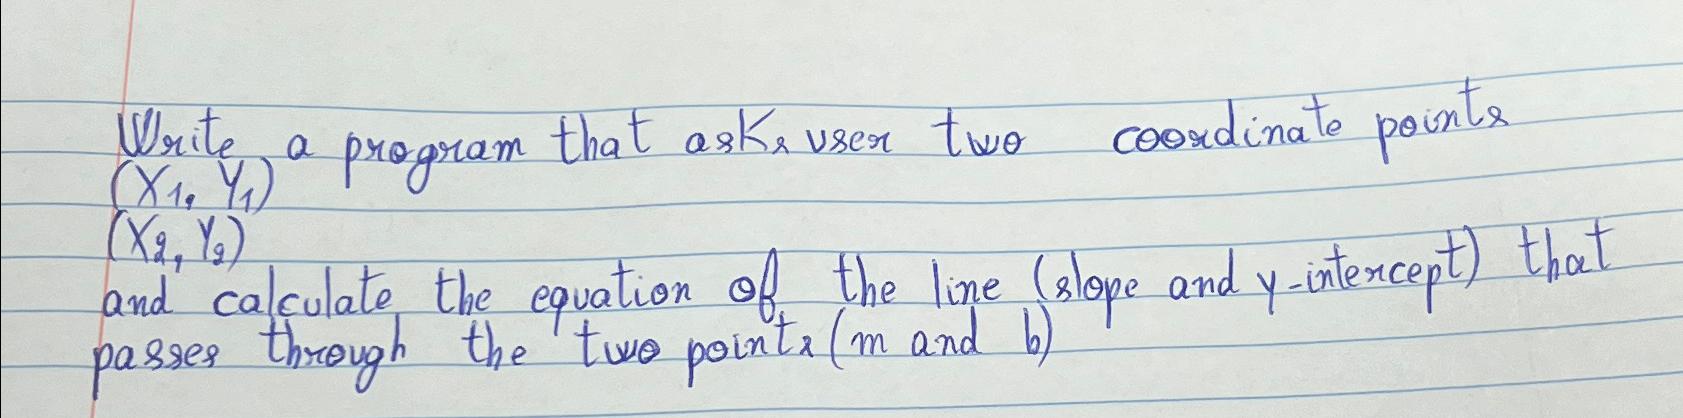 Write a program that asks user two coordinate points
(X1, Y1)
(X2, Y2)
and calculate the equation of the line (slope and y-intercept) that
passes through the two points (m and b)